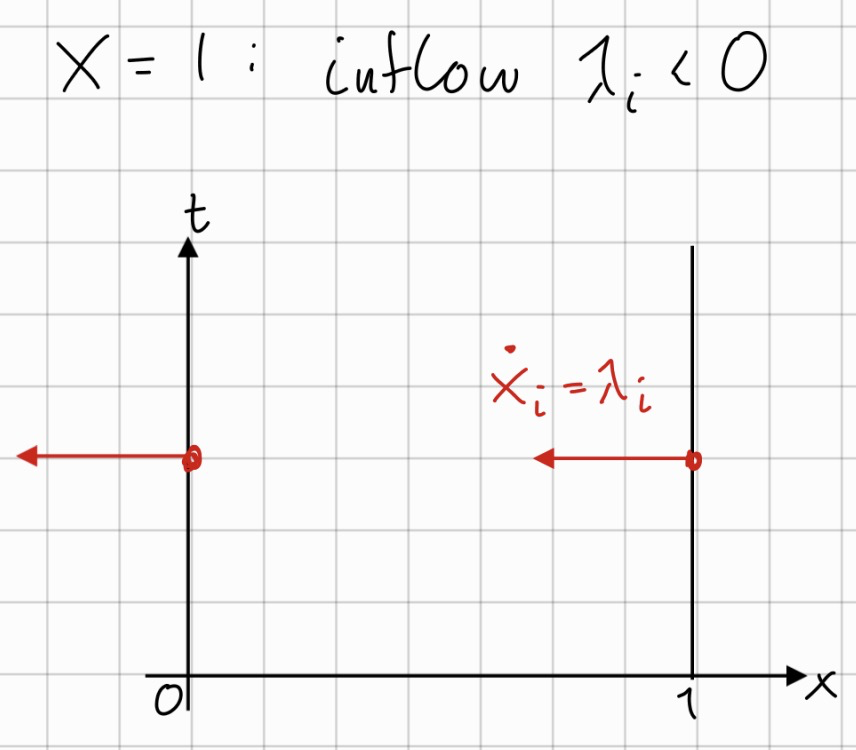 X = 1 : inflow λᵢ < 0
t
ẋᵢ = λᵢ
0
1
x